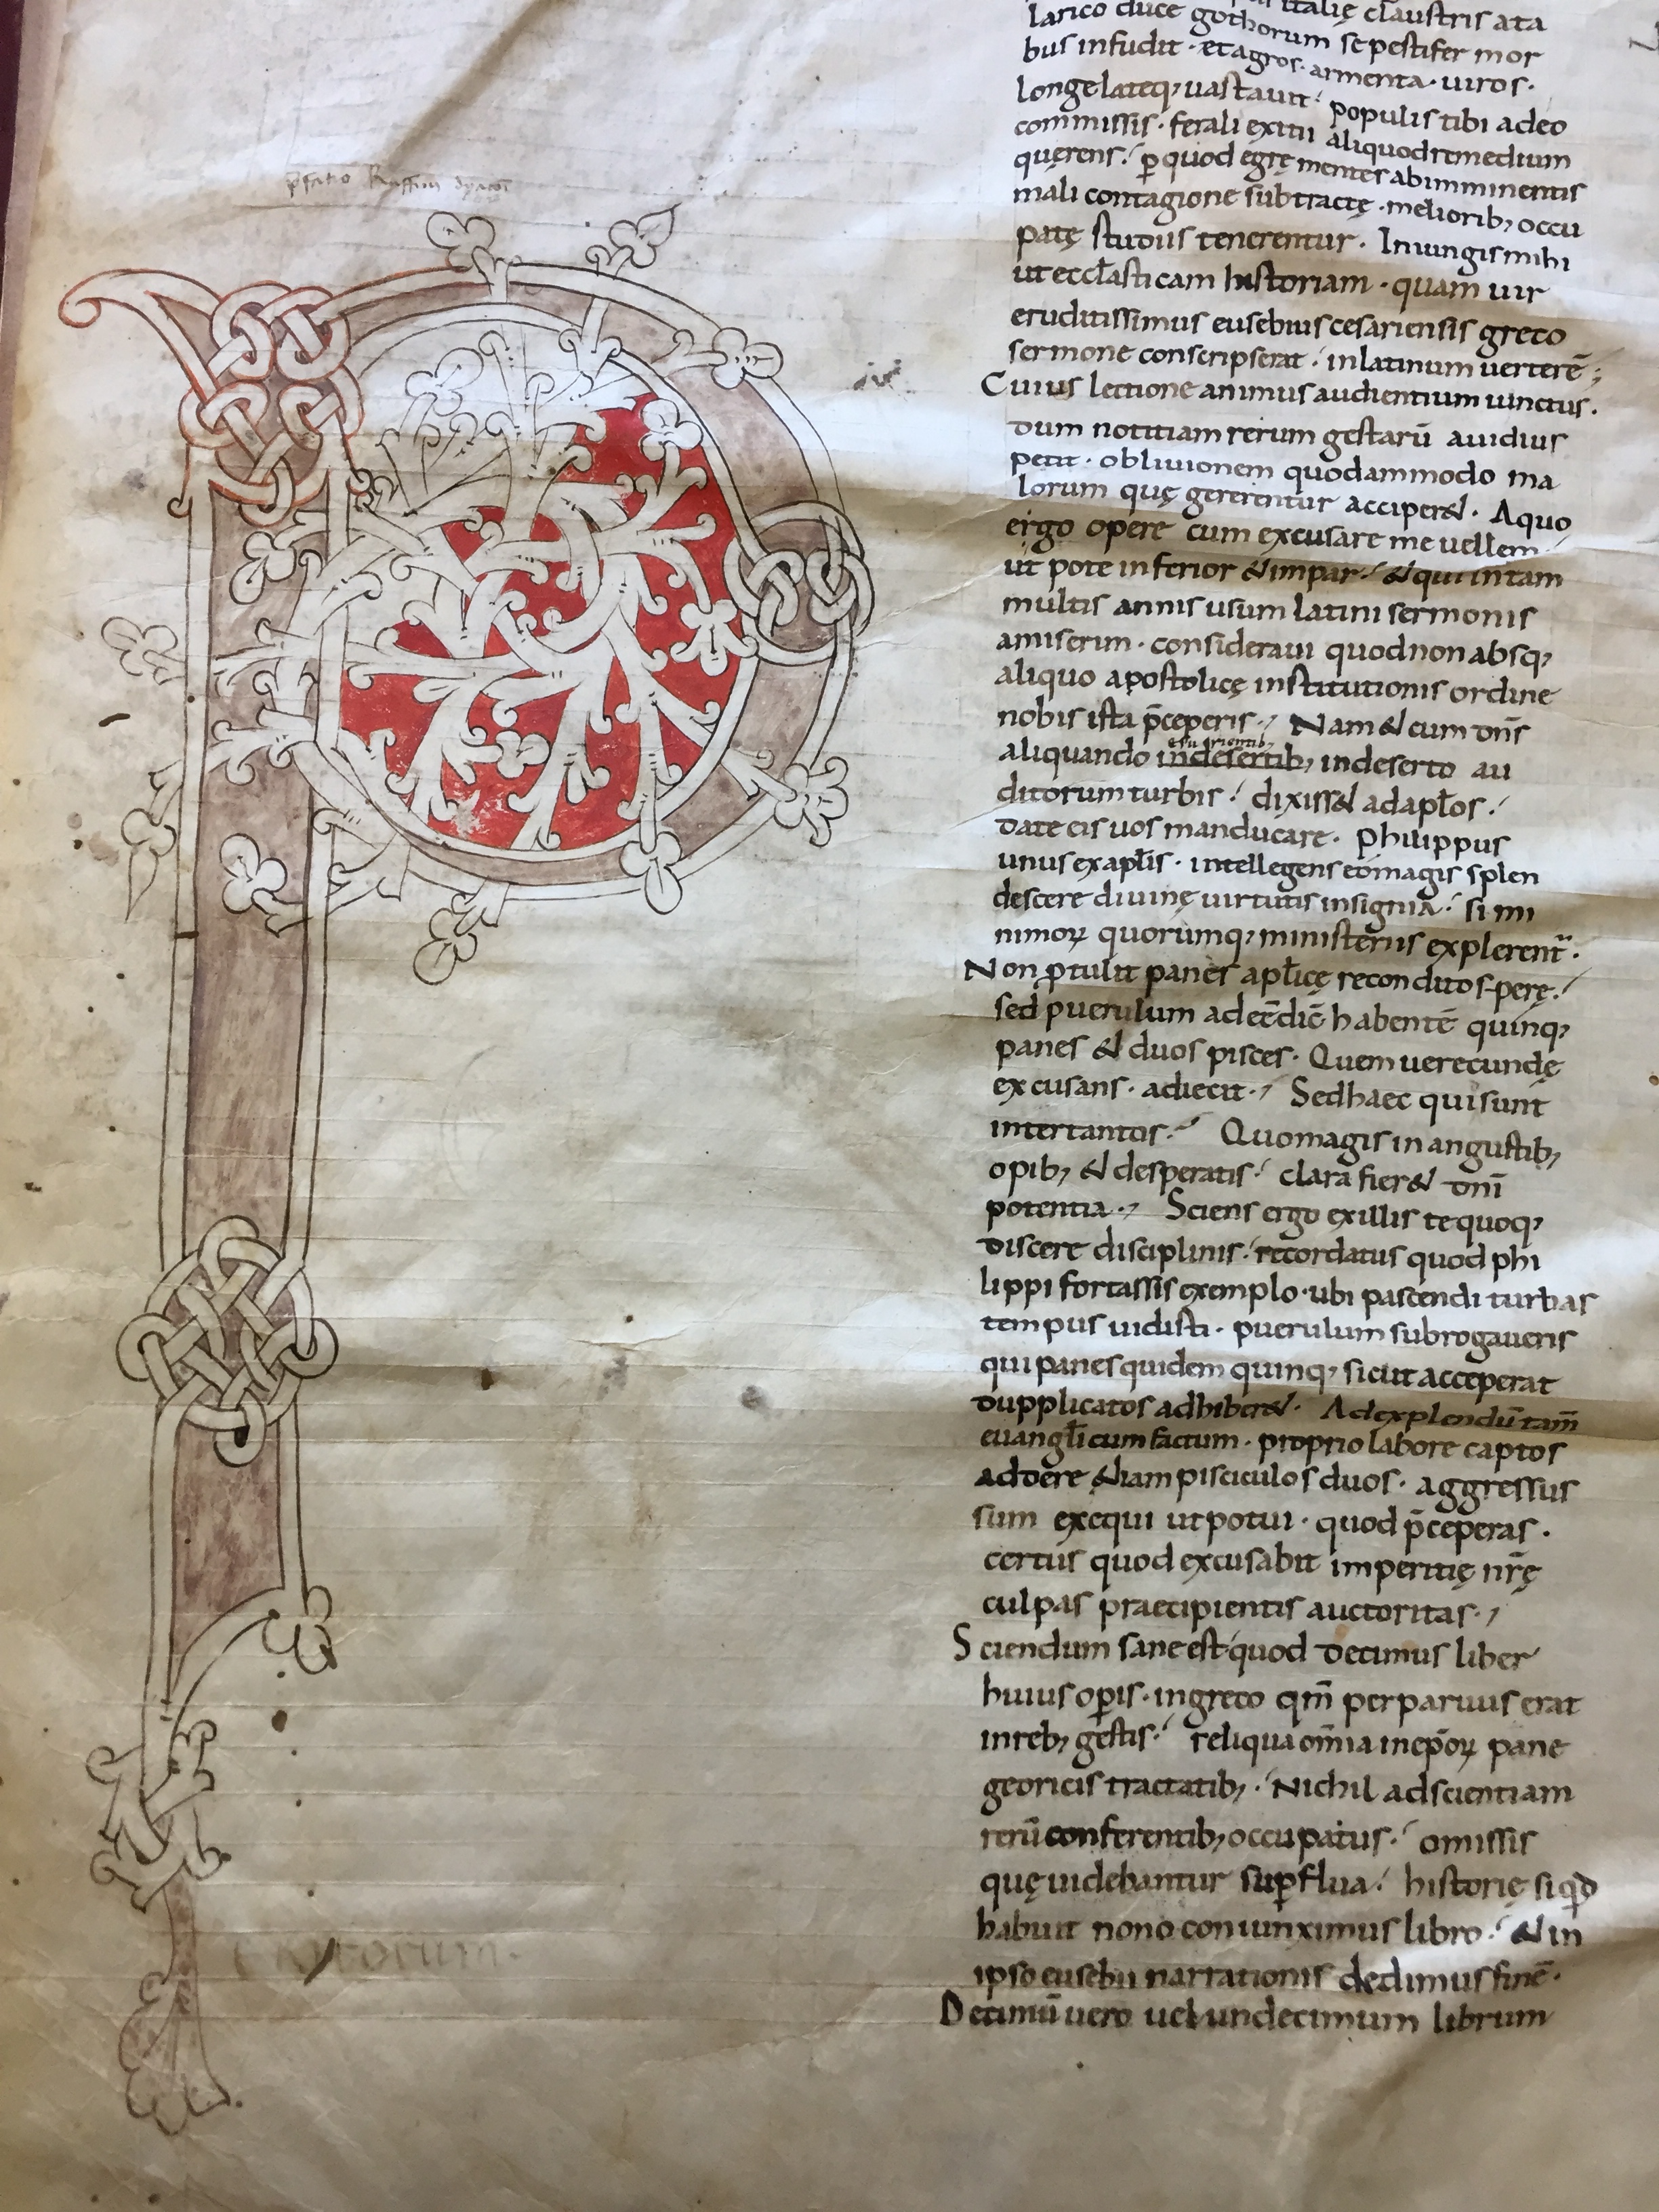 p̄fatio Ruffini dyaconi
P
italię claustris ata
larico duce gothorum se pestifer mor
bus infudit · et agros · armenta · uiros ·
longe lateq; uastauit · populis tibi adeo
commissis · ferali exitii aliquod remedium
querens · ꝑ quod egrę mentes ab imminentis
mali contagione subtractę · meliorib; occu
patę studiis tenerentur · Iniungis mihi
ut eccl̄asticam historiam · quam uir
eruditissimus eusebius cesariensis greco
sermone conscripserat · in latinum uerterē ;
Cuius lectione animus audientium uinctus ·
dum notitiam rerum gestarū auidius
petit · obliuionem quodammodo ma
lorum quę gererentur acciper& · A quo
ergo opere cum excusare me uellem
ut pote inferior & impar · & qui in tam
multis annis usum latini sermonis
amiserim · consideraui quod non absq;
aliquo apostolicę institutionis ordine
nobis ista p̄ceperis · Nam & cum dn̄s
esurientib;
aliquando in desertib; in deserto au
ditorum turbis · dixiss& ad apl̄os ·
date eis uos manducare · philippus
unus ex apl̄is · intellegens eo magis splen
descere diuinę uirtutis insignia · si mi
nimoꝝ quorumq; ministeriis explerent̄ ·
Non ꝓtulit panes apl̄icę reconditos perę ·
sed puerulum adee dic̄ habentē quinq;
panes & duos pisces · Quem uerecundę
excusans · adiecit · Sed haec qui sunt
inter tantos · Quo magis in angustib;
opib; & desperatis · clara fier& dnī
potentia · Sciens ergo ex illis te quoq;
discere disciplinis · recordatus quod phi
lippi fortassis exemplo · ubi pascendi turbas
tempus uidisti · puerulum subrogaueris
qui panes quidem quinq; sicut acceperat
dupplicatos adhiber& · Ad explendū tam̄
euangl̄icum factum · proprio labore captos
addere &iam pisciculos duos · aggressus
sum exequi ut potui · quod p̄ceperas ·
certus quod excusabit imperitię nr̄ę
culpas praecipientis auctoritas ·
Sciendum sane est quod decimus liber
huius opis · in greco qm̄ perparuus erat
in reb; gestis · reliqua om̄ia in ep̄oꝝ pane
georicis tractatib; · Nichil ad scientiam
rerū conferentib; occupatus · omissis
quę uidebantur suꝑflua · historię si qd
habuit nono coniunximus libro · & in
ipso eusebii narrationis dedimus finē ·
Decimū uero uel undecimum librum